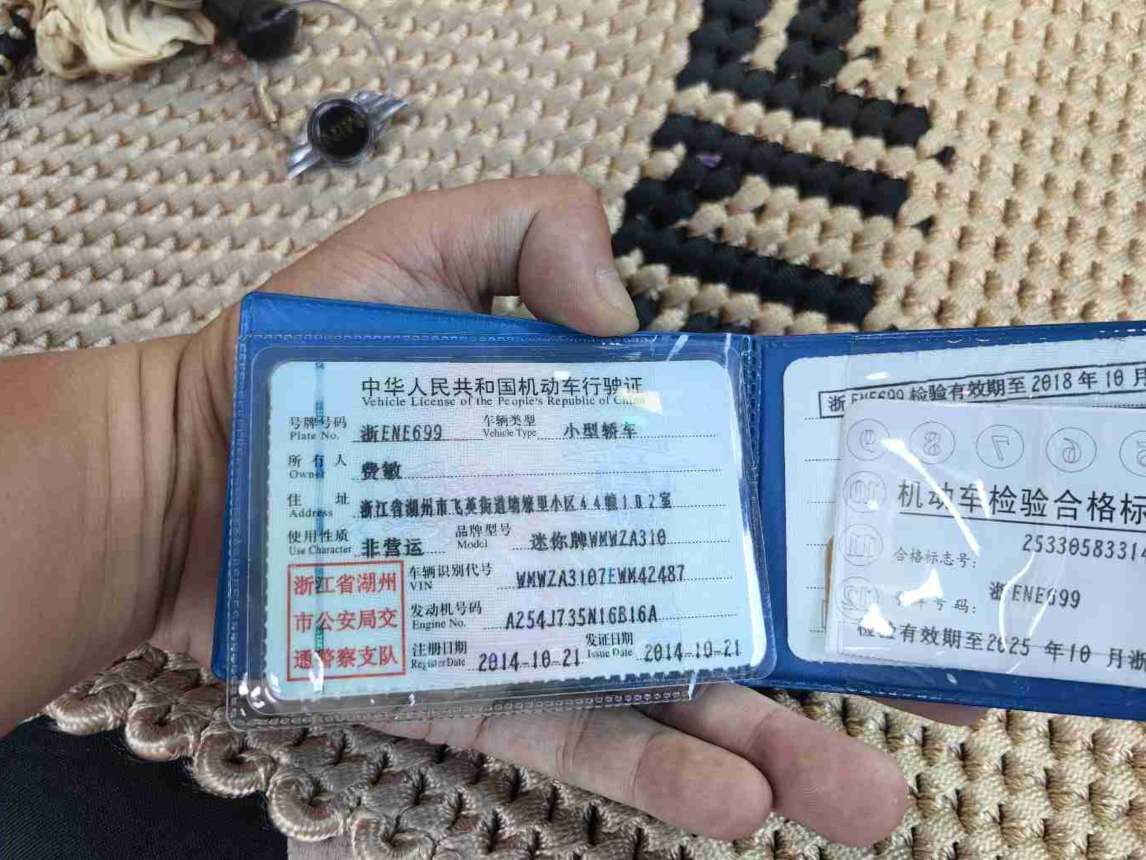 中华人民共和国机动车行驶证
Vehicle License of the People's Republic of China
号牌号码 浙ENE699 车辆类型 小型轿车
Plate No. Vehicle Type
所有人 费敏
Owner
住址 浙江省湖州市飞英街道墙壕里小区44幢102室
Address
使用性质 非营运 品牌型号 迷你牌WMWZA310
Use Character Model
浙江省湖州
市公安局交
通警察支队
车辆识别代号 WMWZA3107EWM42487
VIN
发动机号码 A254J735N16B16A
Engine No.
注册日期 2014-10-21 发证日期 2014-10-21
Register Date Issue Date
浙ENE699 检验有效期至2018年10月
9 8 7 6 5
10
11
12
机动车检验合格标
合格标志号: 2533058331
号码: 浙ENE699
检验有效期至2025 年10 月浙